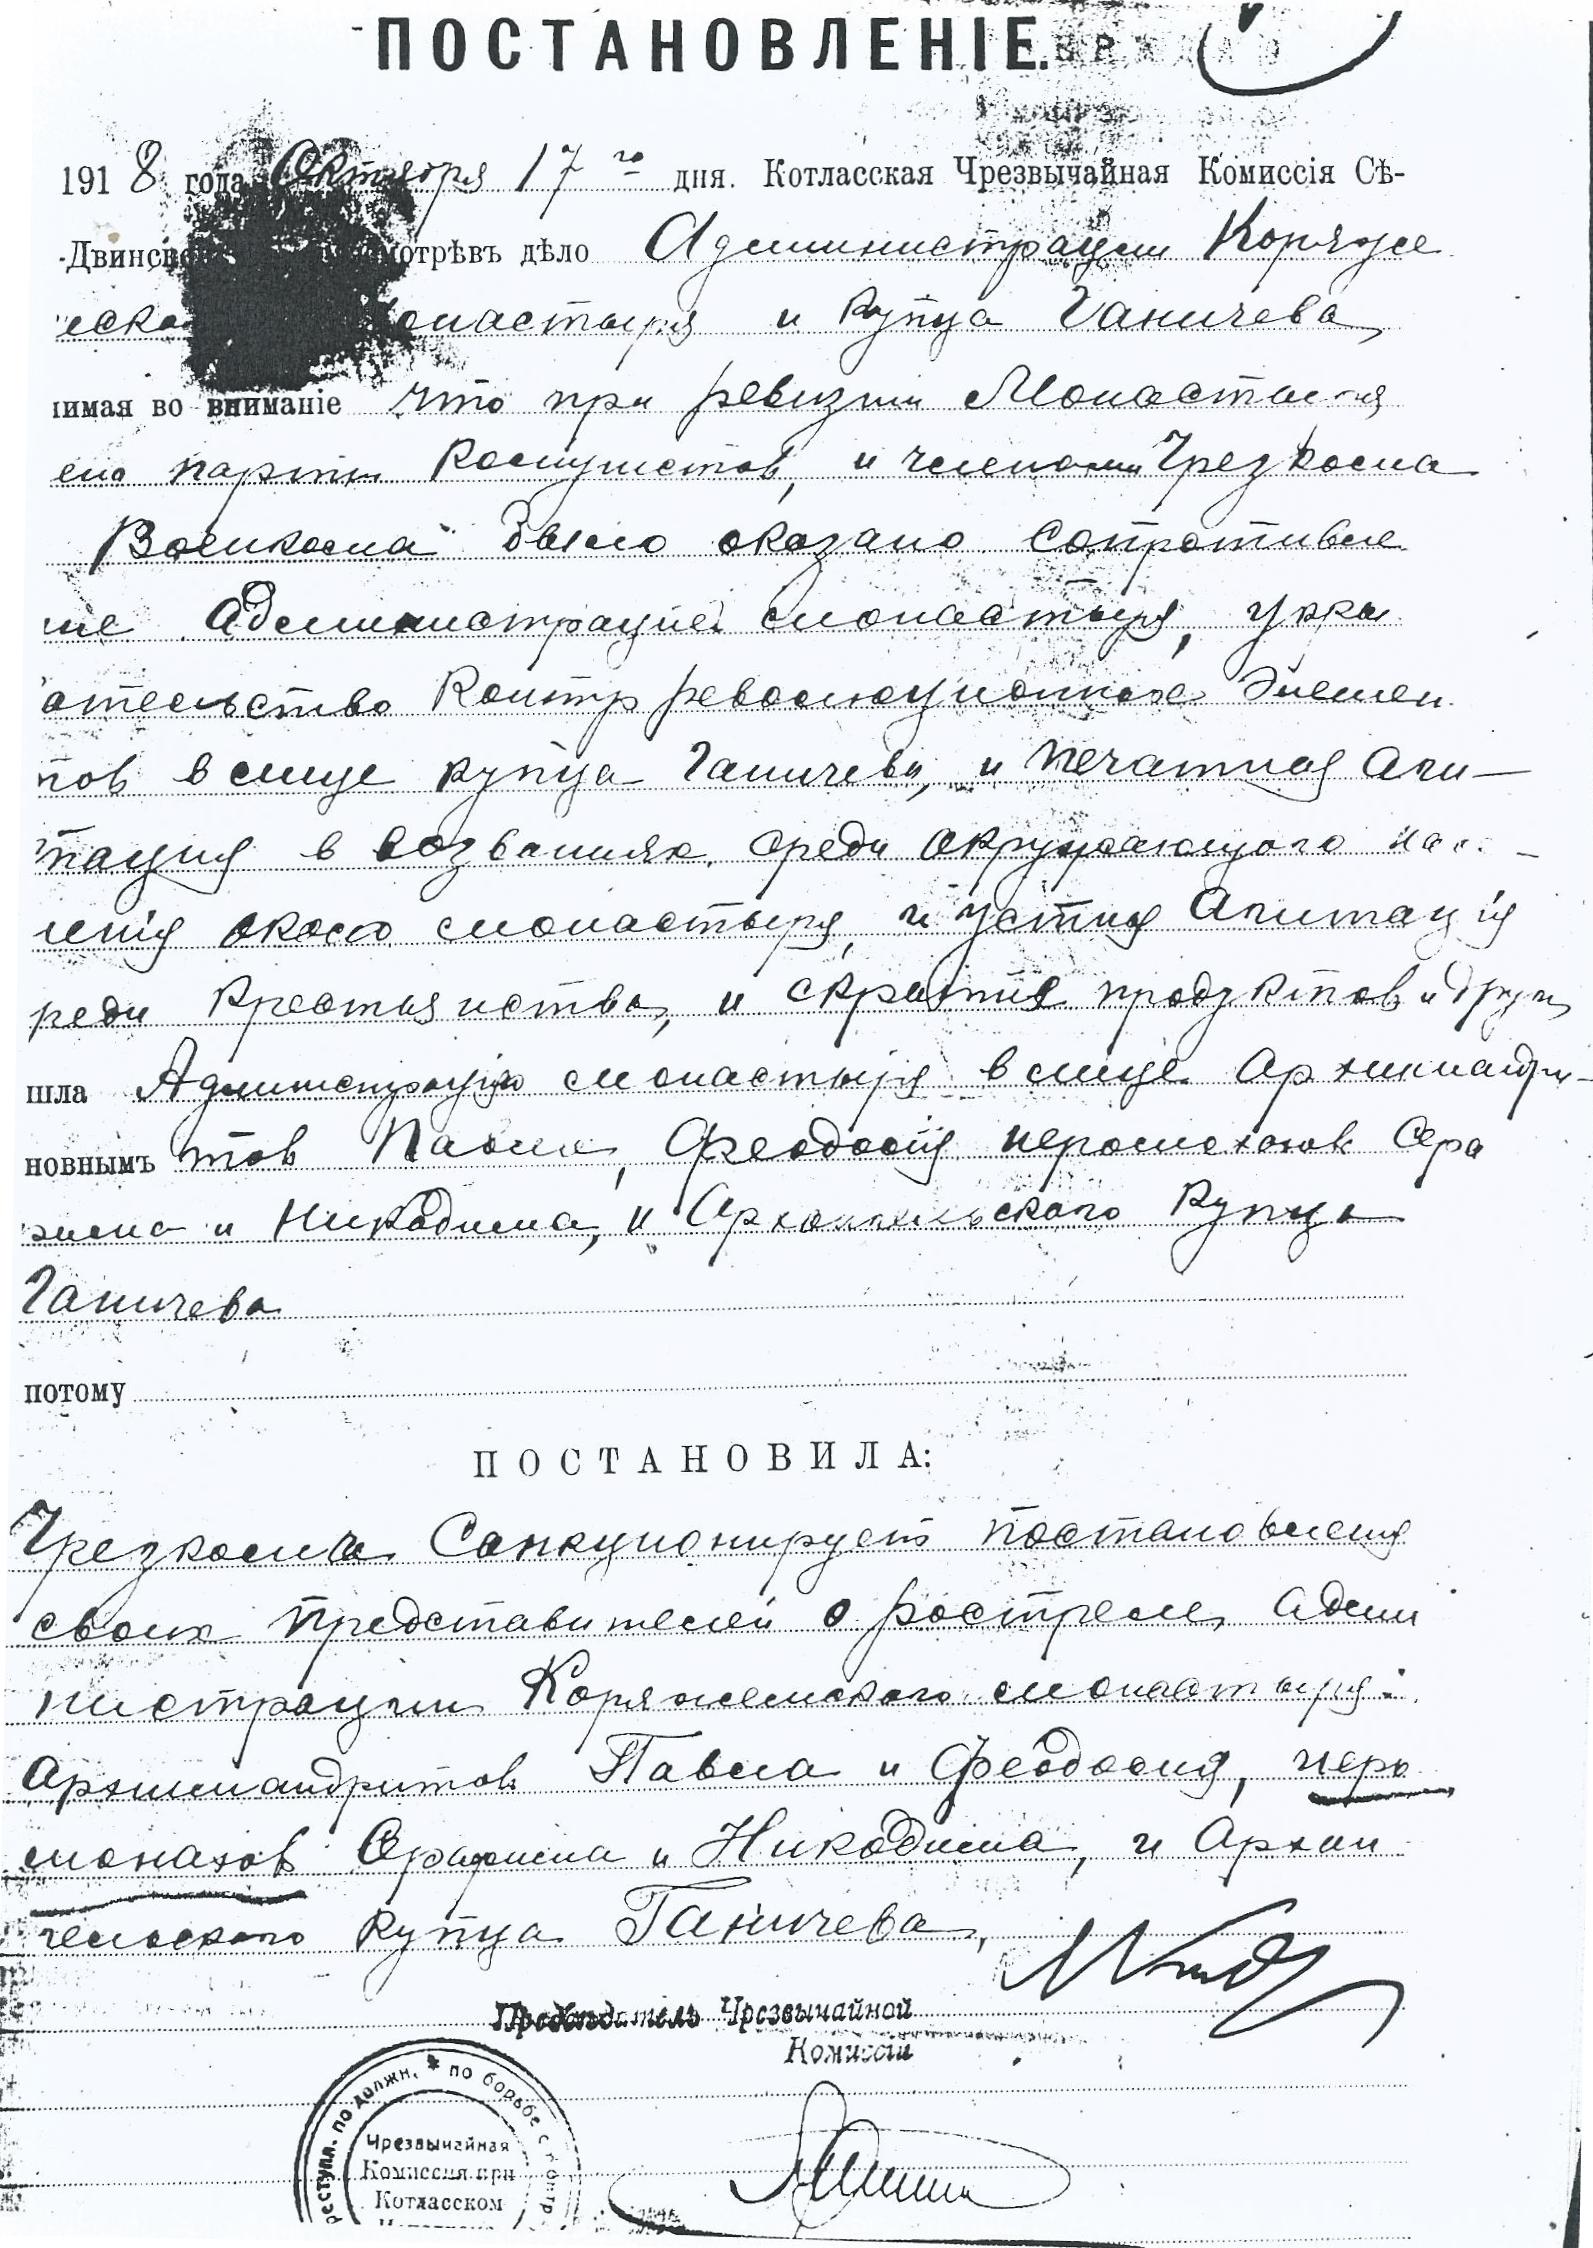 ПОСТАНОВЛЕНІЕ.
1918 года Октября 17го дня. Котласская Чрезвычайная Комиссія Сѣ-
-Двинско мотрѣвъ дѣло Администрации Коряже
еско онастыря и купца Ганичева,
нимая во вниманіе что при ревизии Монастыря
ено партии комунистов, и членами Чрезкома
Военкома было оказано сопротивле
ние Администрацией монастыря, укры
ательство контр революционных Элемен
тов в лице купца Ганичева, и печатная Аги-
тация в воззваниях среди окружающого насе-
ления около монастыря, и устная Агитация
реди крестьянства, и скрытия продуктов и други
шла Администрацию монастыря в лице Архимандри-
новнымъ тов Павла, Феодосия иеромонахов Сера
фима и Никодима, и Архангельского купца
Ганичева
потому
ПОСТАНОВИЛА:
Чрезкома Санкционирует постановления
своих представителей о растреле, адми
нистрации Коряжемского монастыря:
Архимандритов Павла и Феодосия, иеро
монахов Серафима и Никодима, и Архан
гельского купца Ганичева,
Предсѣдатель Чрезвычайной
Комиссіи
реступл. по должн. * по борьбе с контр
Чрезвычайная
Комиссия при
Котласском